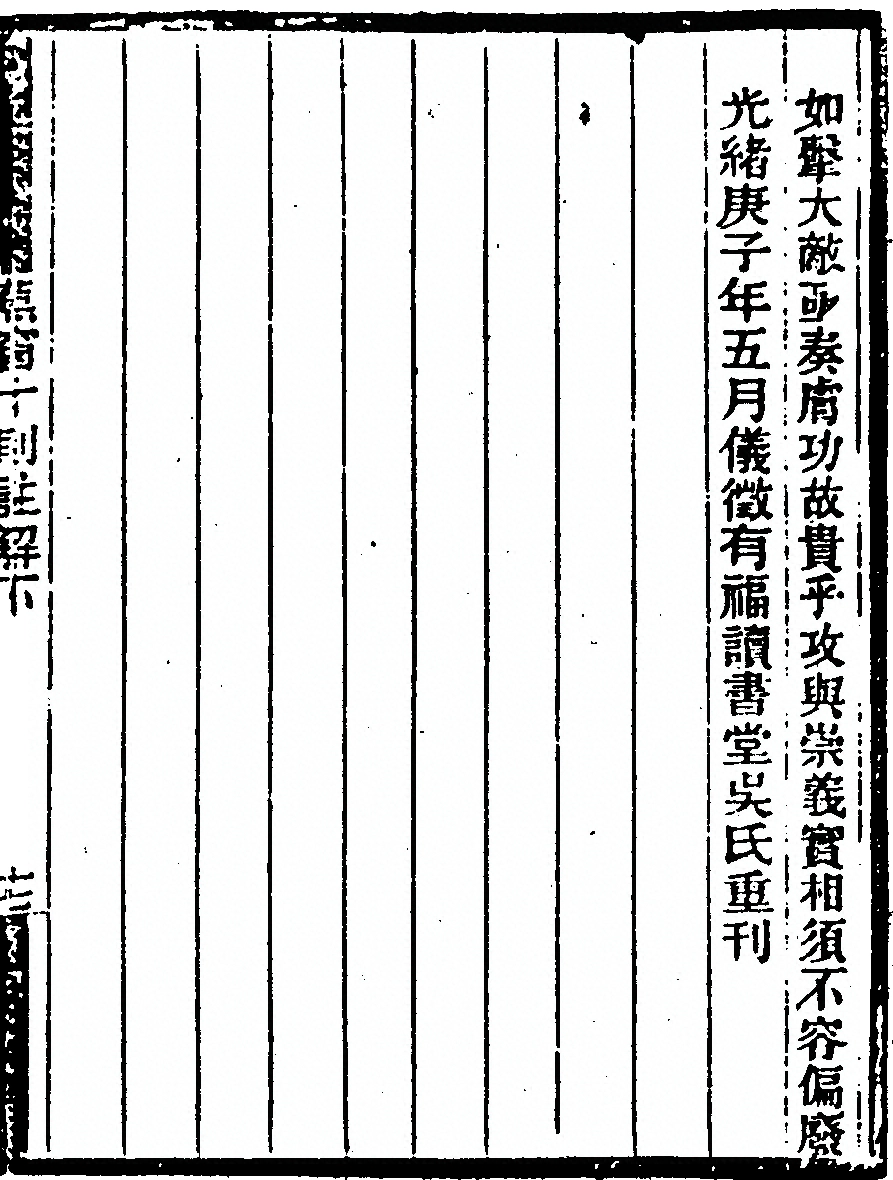 如擊大敵亟奏膚功故貴乎攻與崇義實相須不容偏廢
光緒庚子年五月儀徵有福讀書堂吳氏重刊
註解下